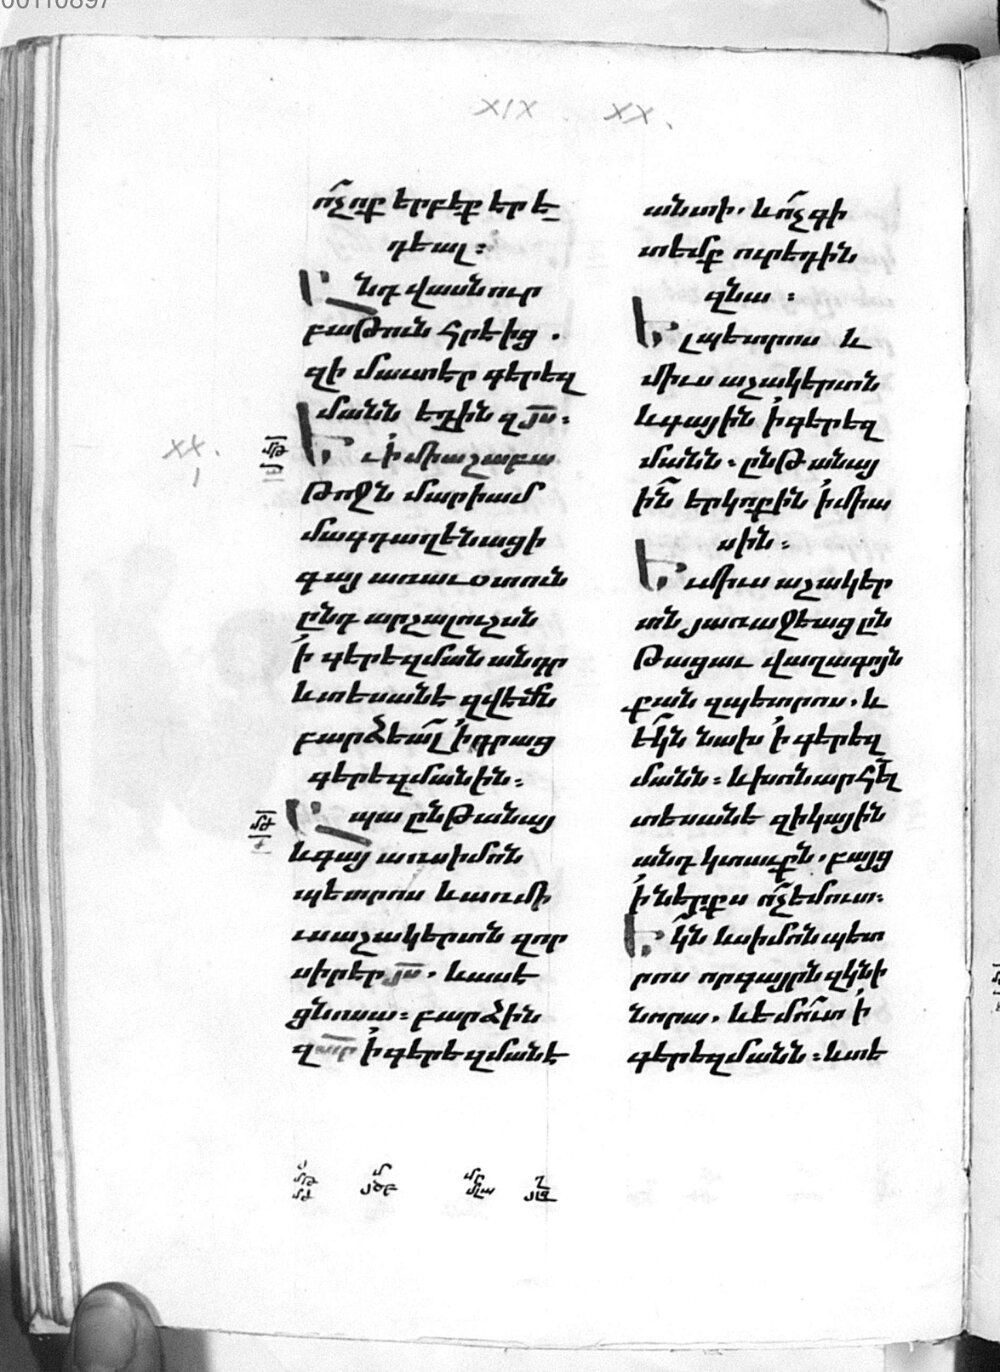 00110897
XIX . XX .
ո՞չ ոք երբեք էր ե
դեալ ։
Անդ վասն ուր
բաթուն հրէից .
զի մատ էր գերեզ
մանն եդին զյս ։
XX .
1
Եւ ՛ի միաշաբա
թոջն մարիամ
մագդաղենացի
գայ առաւօտուն
ընդ արշալուշսն
՛ի գերեզման անդր
և տեսանէ զվէմն
բարձեալ ՛ի դրաց
գերեզմանին ։
Ապա ընթանայ
և գայ առ սիմոն
պետրոս և առ մի
ւս աշակերտն զոր
սիրէր յս . և ասէ
ցնոսա ։ բարձին
զտր ՛ի գերեզմանէ
անտի . և ո՛չ գի
տեմք ուր եդին
զնա ։
Ել պետրոս և
միւս աշակերտն
և գային ՛ի գերեզ
մանն . ընթանայ
ին երկոքին ՛ի միա
սին ։
Եւ միւս աշակեր
տն յառաջեաց ըն
թացաւ վաղագոյն
քան զպետրոս . և
եկն նախ ՛ի գերեզ
մանն ։ և խոնարհել
տեսանէ զի կային
անդ կտաւքն . բայց
՛ի ներքս ո՛չ եմուտ ։
Եկն և սիմոն պետ
րոս որ գայրն զկնի
նորա . և եմուտ ՛ի
գերեզմանն ։ և տե